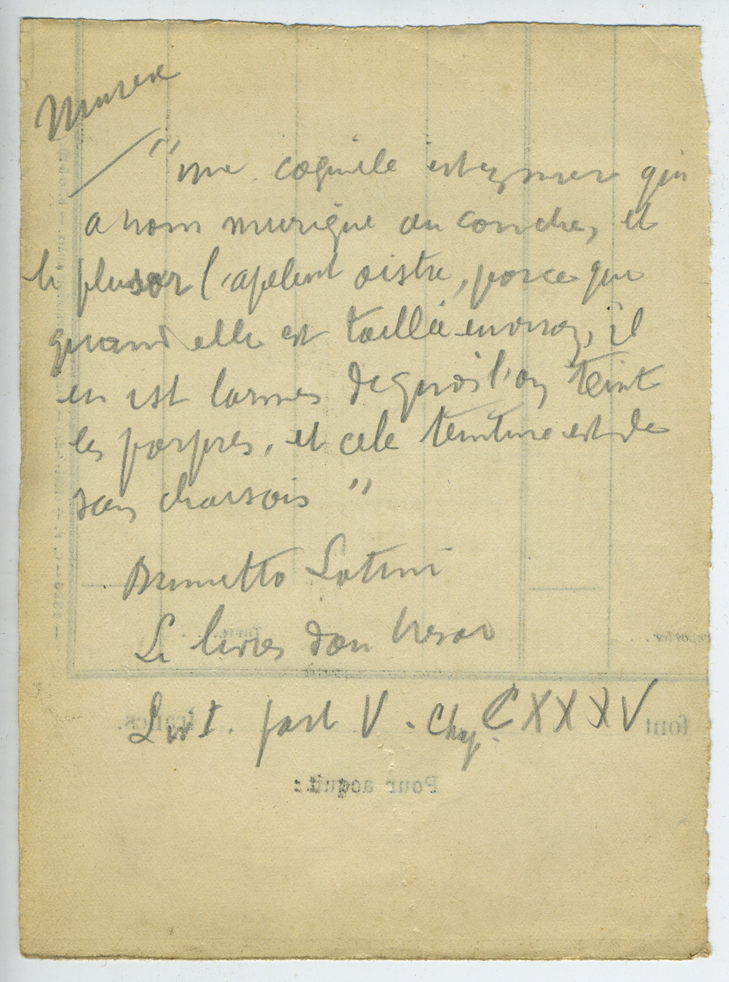 Murex
"une coquille est en mer qui
a nom murique ou conche, et
li plusor l'apelent oistre, porce que
quand elle est taillée environ, il
en ist larmes de quoi l'on teint
les porpres, et cele teinture est de
son charsois"
Brunetto Latini
Li livres dou tresor
Liv I. part V. Chap. CXXXV
font francs.
Pour acquit: